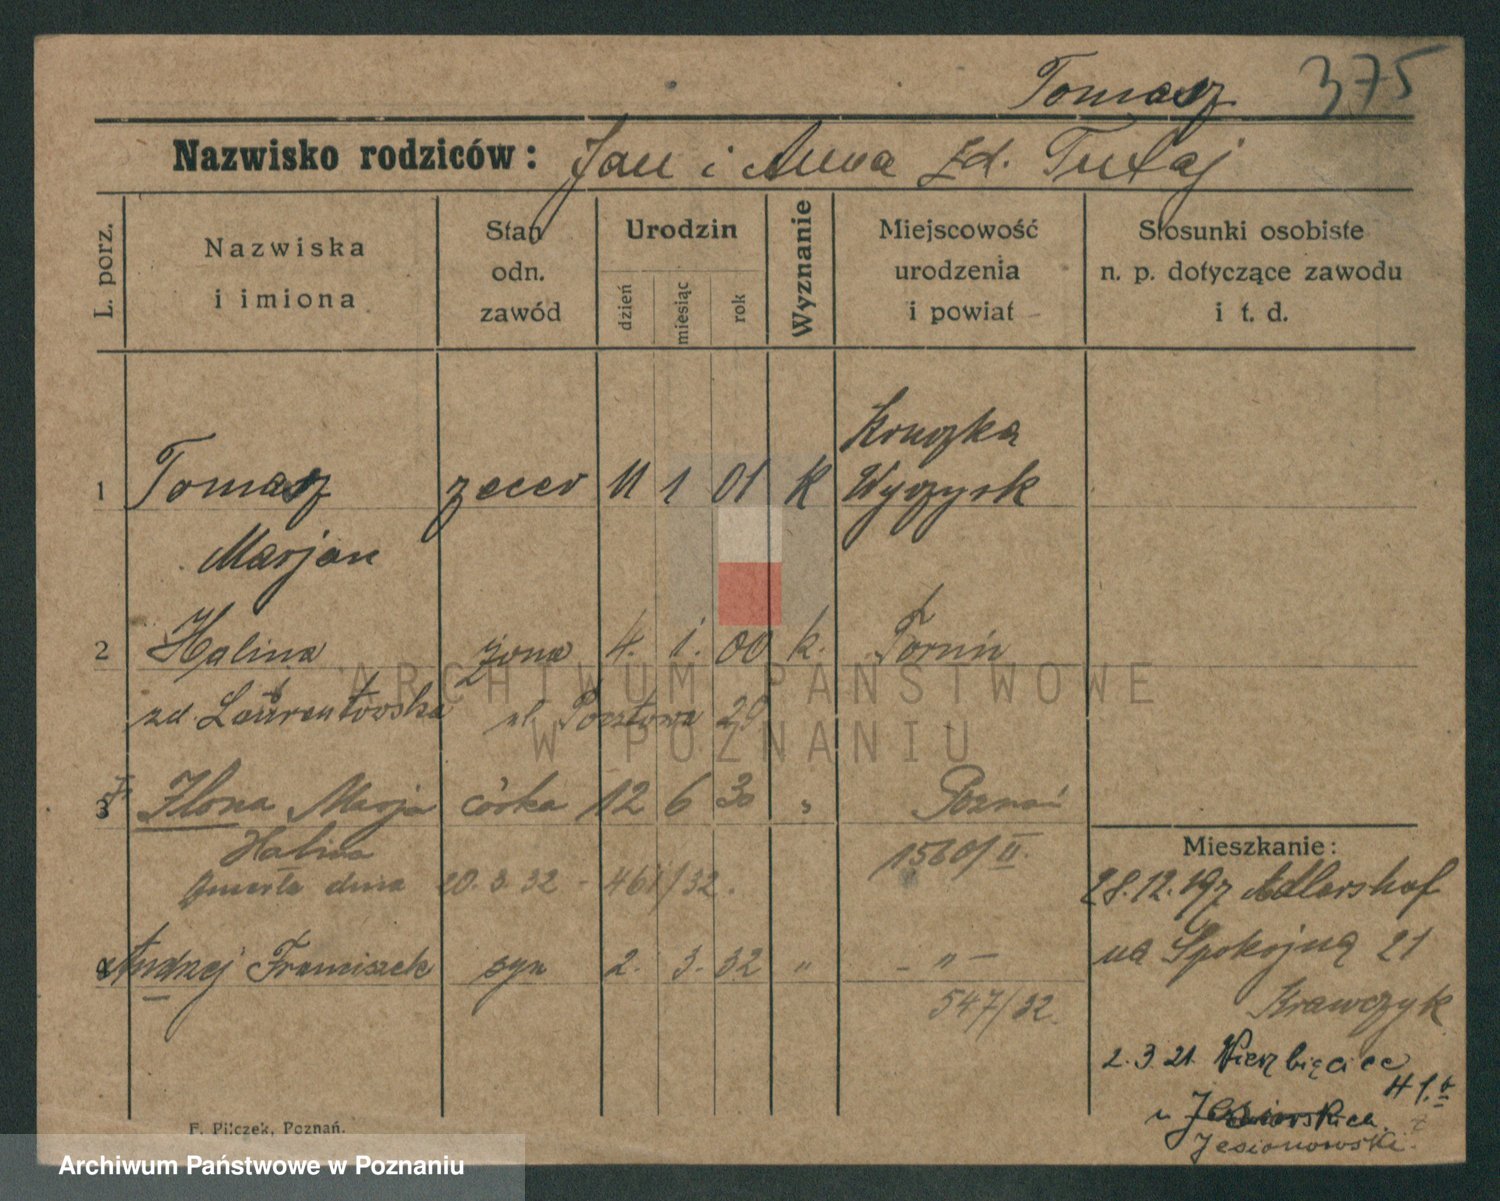 Tomasz 375
Nazwisko rodziców: Jan i Anna zd. Tułaj
L. porz.
Nazwiska i imiona
Stan odn. zawód
Urodzin
dzień miesiąc rok
Wyznanie
Miejscowość urodzenia i powiat
Stosunki osobiste n. p. dotyczące zawodu i t. d.
Kruszka
1 Tomasz zecer 11 1 01 k Wyrzysk
Marjan
2 Halina żona 4. 1. 00 k. Toruń
zd. Laurentowska ul. Pocztowa 29
3 Ilona Marja córka 12 6 30 " Poznań
Halina 1560/II.
Zmarła dnia 20.3.32 - 461/32.
4 Andrzej Franciszek syn 2. 3. 32 " - " -
547/32
Mieszkanie:
28.12.197 Adlershof
na Spokojną 21
Krawczyk
2.3.21 Wierzbięcice
41.
u
Jesionowski.
F. Pilczek, Poznań.
ARCHIWUM PAŃSTWOWE
W POZNANIU
Archiwum Państwowe w Poznaniu